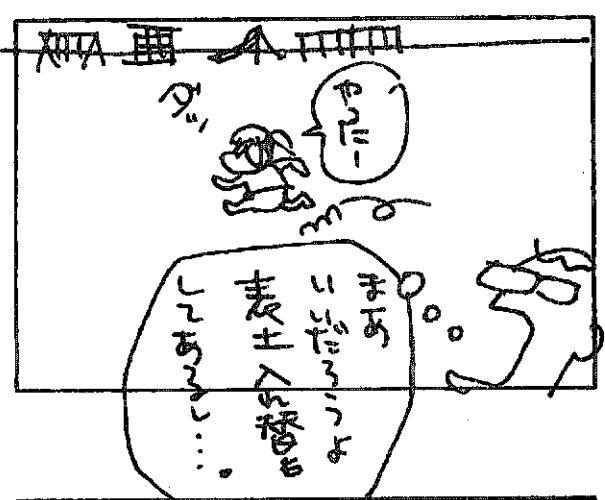 やった!
ダッ
まあ
いいだろうよ
表土入れ替も
してあるし…。